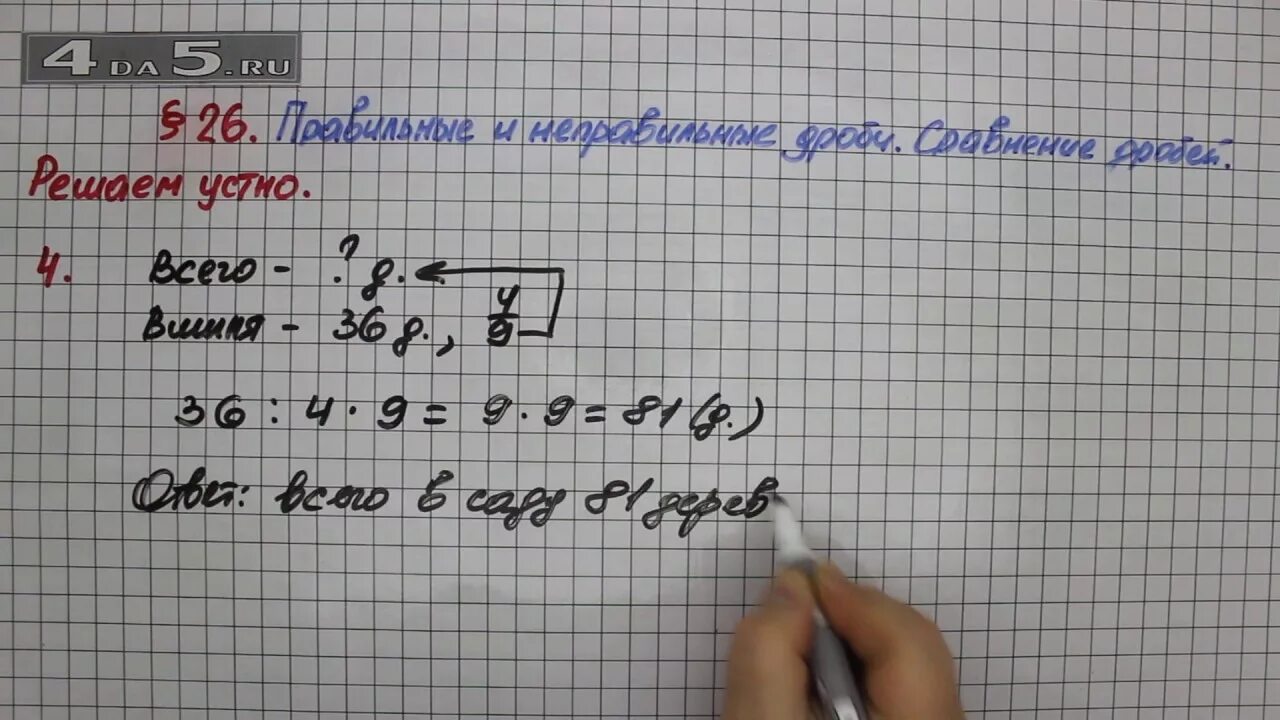 4 DA 5.RU
§ 26. Правильные и неправильные дроби. Сравнение дробей.
Решаем устно.
4. Всего - ? д.
Вишня - 36 д., 4/9
36 : 4 · 9 = 9 · 9 = 81 (д.)
Ответ: всего в саду 81 дерев